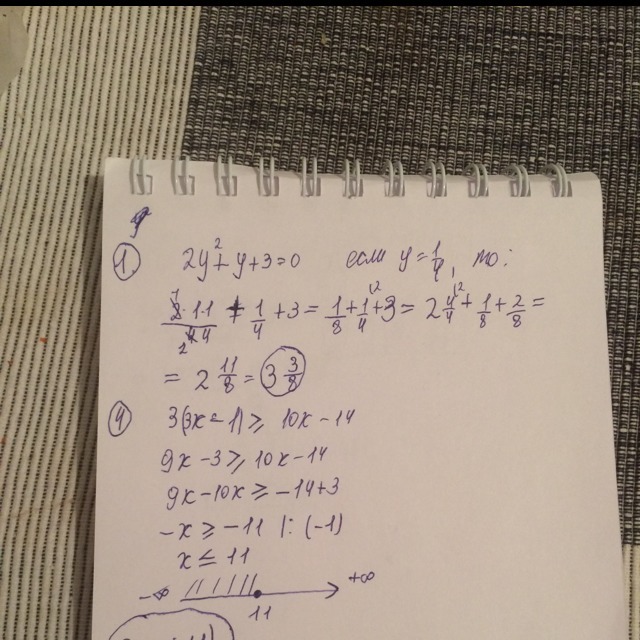 1. 2y²+y+3=0 если y=1/4, то:
2·1·1/4·4 + 1/4 + 3 = 1/8 + 1/4 + 3 = 2 4/4 + 1/8 + 2/8 =
= 2 11/8 = 3 3/8
4 3(3x-1) ≥ 10x-14
9x-3 ≥ 10x-14
9x-10x ≥ -14+3
-x ≥ -11 |:(-1)
x ≤ 11
-∞ +∞
11